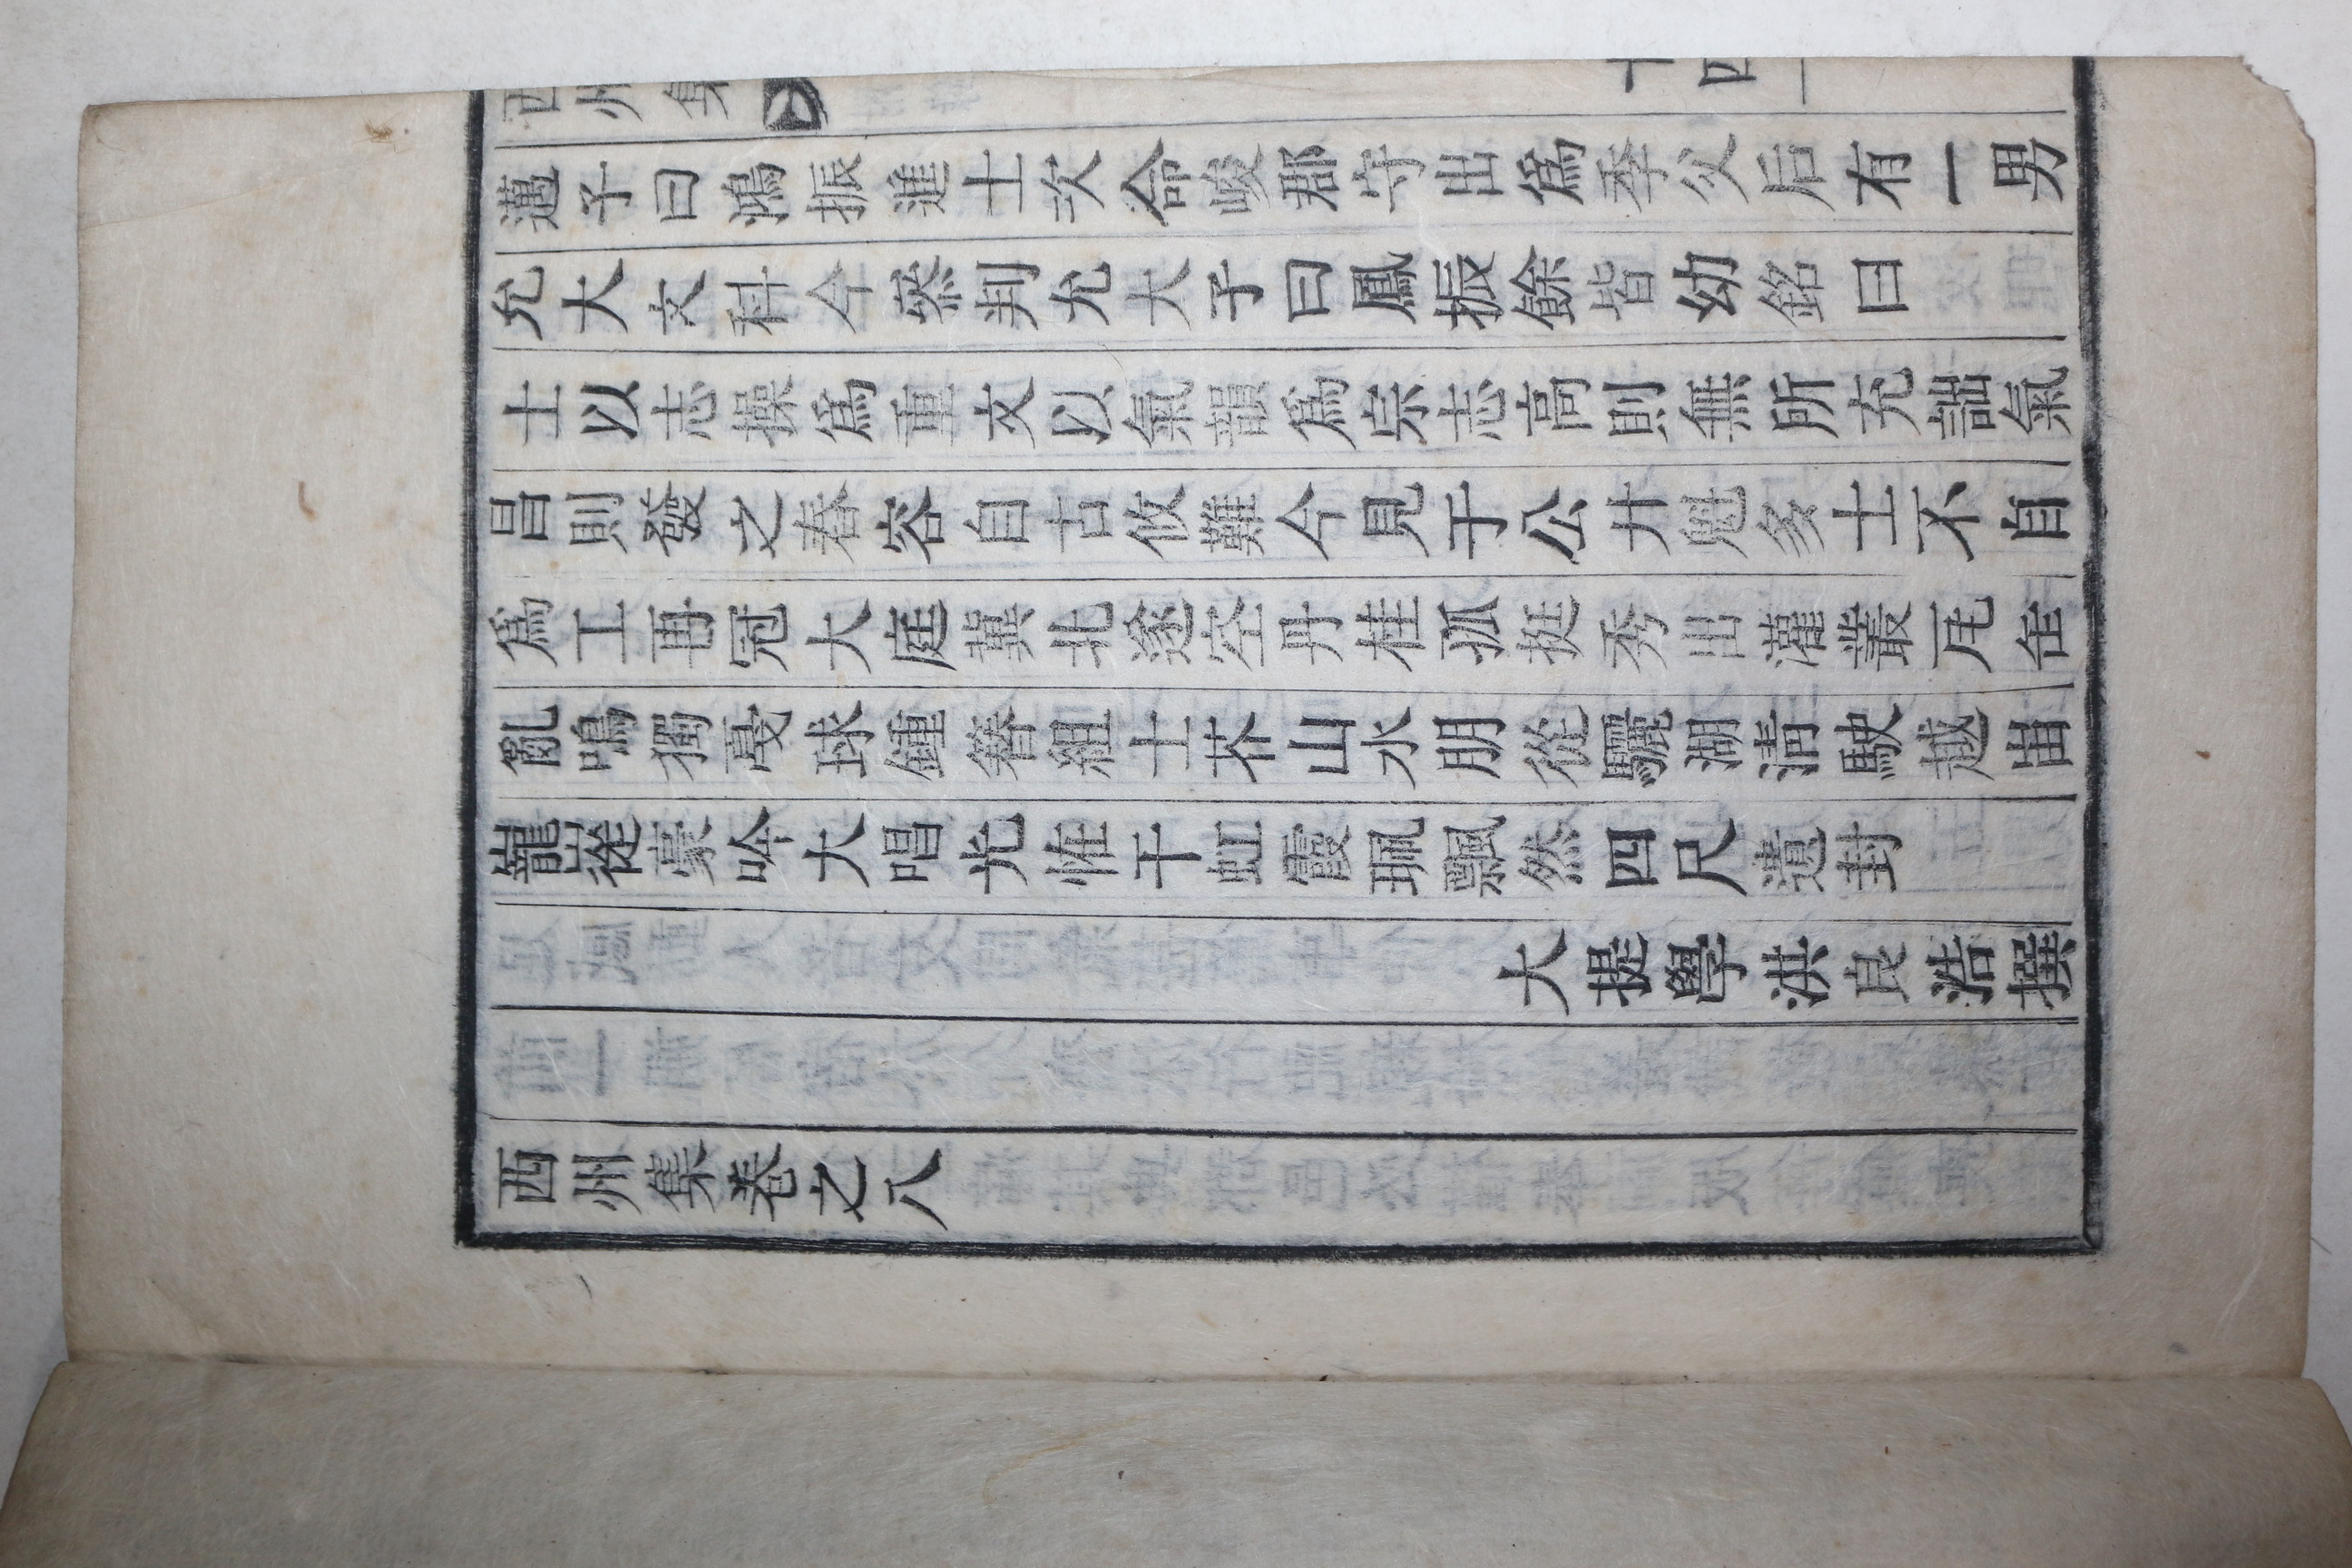 西州集 十四
邁子曰鴻振進士次命峻郡守出爲季父后有一男
允大文科今叅判允大子曰鳳振餘皆幼銘曰
士以志操爲重文以氣韻爲宗志高則無所充詘氣
昌則發之舂容自古攸難今見于公廾魁多士不自
爲工再冠大庭冀北遂空丹桂孤挺秀出灌叢瓦缶
亂鳴獨戞球鍾簪組士芥山水朋從驪湖淸駛越峀
巃嵸豪吟大唱光恠干虹霞珮飄然四尺遺封
大提學洪良浩撰
西州集卷之八